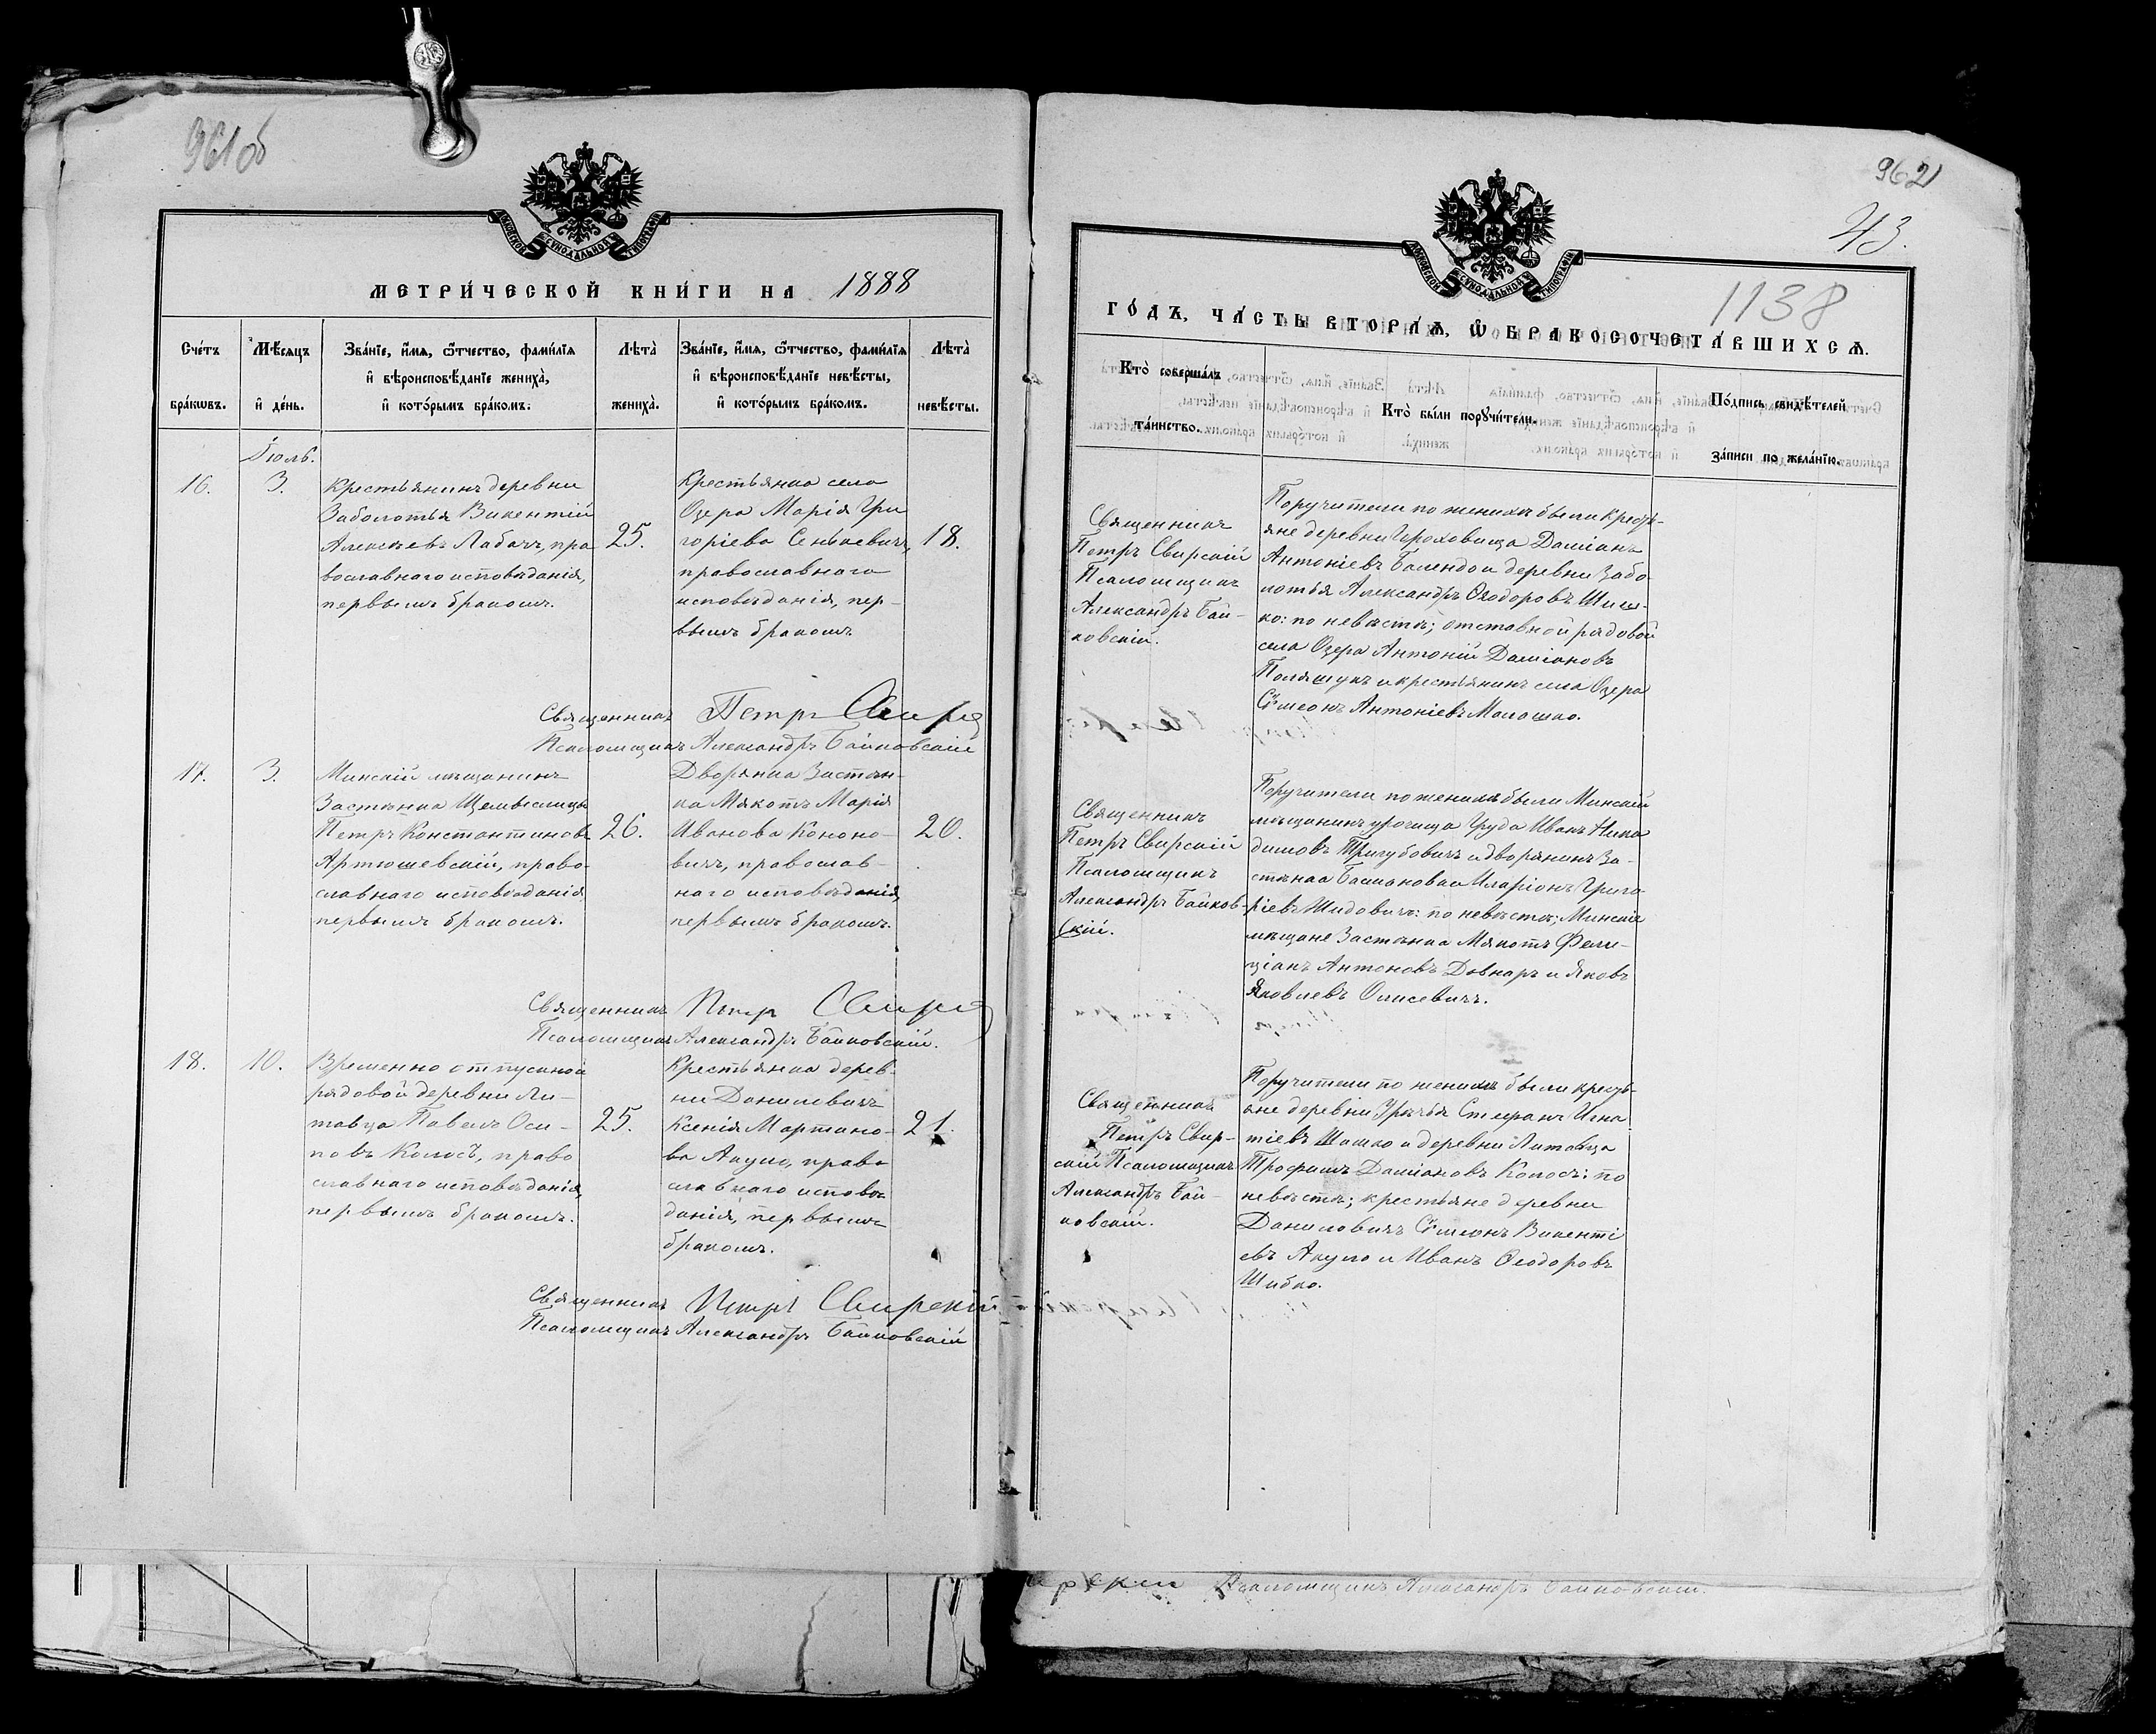 961об
МОСКОВСКОЙ СУНОДАЛЬНОЙ ТИПОГРАФІИ
МЕТРИ́ЧЕСКОЙ КНИ́ГИ НА 1888
Сче́тъ бра́кωвъ.
Мѣ́сяцъ и҆ де́нь.
Зва́нїе, и҆́мѧ, ѻ҆́тчество, фами́лїѧ и҆ вѣроисповѣ́данїе жениха̀, и҆ кото́рымъ бра́комъ.
Лѣта̀ жениха̀.
Зва́нїе, и҆́мѧ, ѻ҆́тчество, фами́лїѧ и҆ вѣроисповѣ́данїе невѣ́сты, и҆ кото́рымъ бра́комъ.
Лѣта̀ невѣ́сты.
Іюль.
16.
3.
Крестьянинъ деревни
Заболотья Викентій
Алексѣевъ Лабачъ, пра
вославнаго исповѣданія,
первымъ бракомъ.
25.
Крестьянка села
Озера Марія Гри
горіева Сенкевичъ,
православнаго
исповѣданія, пер-
вымъ бракомъ.
18.
Священникъ Петръ Свирс
Псаломщикъ Александръ Байковскій
17.
3.
Минскій мѣщанинъ
Застѣнка
Петръ Константиновъ
Артюшевскій, право-
славнаго исповѣданія
первымъ бракомъ.
26.
Дворянка Застѣн-
ка Мякотъ Марія
Иванова Кононо-
вичъ, православ-
наго исповѣданія,
первымъ бракомъ.
20.
Священникъ Петръ Свирс
Псаломщикъ Александръ Байковскій.
18.
10.
Временно отпускной
рядовой деревни Ли-
товца Павелъ Оси-
повъ Колосъ, право
славнаго исповѣданія,
первымъ бракомъ.
25.
Крестьянка дерев-
ни Даниловичъ
Ксенія Мартино-
ва Акуло, право
славнаго исповѣ
данія, первымъ
бракомъ.
21.
Священникъ Петръ Свирскій
Псаломщикъ Александръ Байковскій
962
43.
1138
МОСКОВСКОЙ СУНОДАЛЬНОЙ ТИПОГРАФІИ
ГО́ДЪ, ЧА́СТЬ ВТОРА́Ѧ, Ѡ҆ БРАКОСОЧЕТА́ВШИХСѦ.
Кто̀ соверша́лъ та́инство.
Кто̀ бы́ли порꙋчи́тели.
По́дпись свидѣ́телей за́писи по жела́нїю.
Священникъ
Петръ Свирскій
Псаломщикъ
Александръ Бай-
ковскій.
Поручители по женихѣ были крестья-
яне деревни Гороховища Даміанъ
Антоніевъ Балендо и деревни Забо
лотья Александръ Ѳеодоровъ Шиш-
ко: по невѣстѣ; отставной рядовой
села Озера Антоній Даміановъ
Полящукъ и крестьянинъ села Озера
Сѵмеонъ Антоніевъ Малошко.
Священникъ
Петръ Свирскій
Псаломщикъ
Александръ Байков-
скій.
Поручители по женихѣ были Минскій
мѣщанинъ урочища Груда Иванъ Нико
димовъ Тригубовичъ и дворянинъ За-
стѣнка Иларіонъ Григо
ріевъ Шидовичъ: по невѣстѣ; Минскіе
мѣщане Застѣнка Мякотъ Фели-
ціанъ Антоновъ Довнаръ и Яковъ
Яковлевъ Олисевичъ.
Священникъ
Петръ Свир-
скій Псаломщикъ
Александръ Бай-
ковскій.
Поручители по женихѣ были кресть-
яне деревни Урѣчья Стефанъ Игна
тіевъ Шашко и деревни Литовца
Трофимъ Даміановъ Колосъ: по
невѣстѣ; крестьяне деревни
Даниловичъ Сѵмеонъ Викенті
евъ Акуло и Иванъ Ѳеодоровъ
Шибко.
Псаломщикъ Александръ Байковскій.